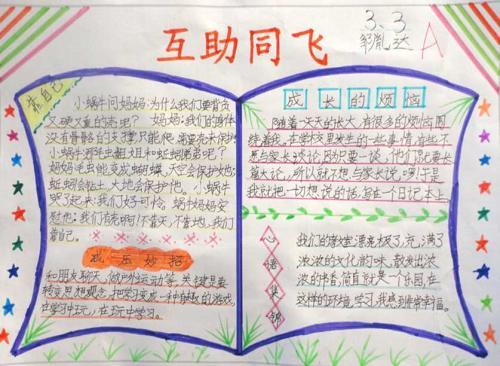 互助同飞
3、3
邹胤达
A
靠自己
小蜗牛问妈妈:为什么我们要背负
又硬又重的壳呢?妈妈:我们的身体
没有骨骼的支撑,只能爬,需要壳来保护
小蜗牛:毛虫姐姐和蚯蚓弟弟呢?
妈妈:毛虫能变成蝴蝶,天空会保护她;
蚯蚓会钻土,大地会保护他。小蜗牛
哭了起来:我们好可怜。蜗牛妈妈安
慰他:我们有壳啊!不靠天,不靠地,我们
靠自己。
成乐妙招
和朋友聊天,做户外运动等,关键是要
转变思想观念,把学习变成一种有趣的游戏,
在学习中玩,在玩中学习。
成长的烦恼
随着一天天的长大,有很多的烦恼围
绕着我,在学校里发生的一些事情,有些不
愿与家长谈论,因为只要一谈,他们就要长
篇大论,所以就不想与家长说,哪,于是
我就把一切想说的话,写在个日记本上
心语集锦
我们的教室漂亮极了,充满了
浓浓的文化韵味,散发出浓
浓的书香,简直就是一个乐园,在
这样的环境学习,我感到非常幸福。